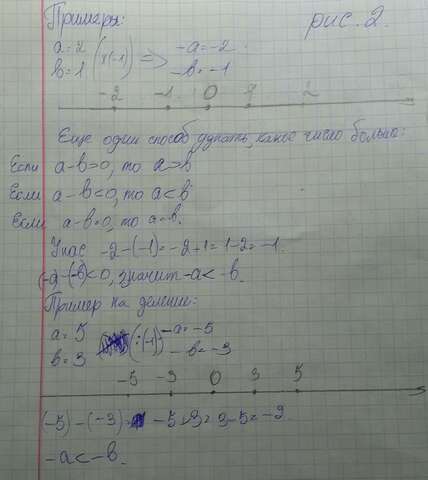 Примеры:
рис. 2.
a=2 (×(-1)) => -a=-2
b=1 -b=-1
-2 -1 0 1 2
Еще один способ узнать, какое число больше:
Если a-b>0, то a>b
Если a-b<0, то a<b
Если a-b=0, то a=b.
У нас -2-(-1)=-2+1=1-2=-1.
(-a)-(-b)<0, значит -a<-b.
Пример на деление:
a=5 (:(-1)) -a=-5
b=3 -b=-3
-5 -3 0 3 5
(-5)-(-3)= -5+3=3-5=-2
-a<-b.